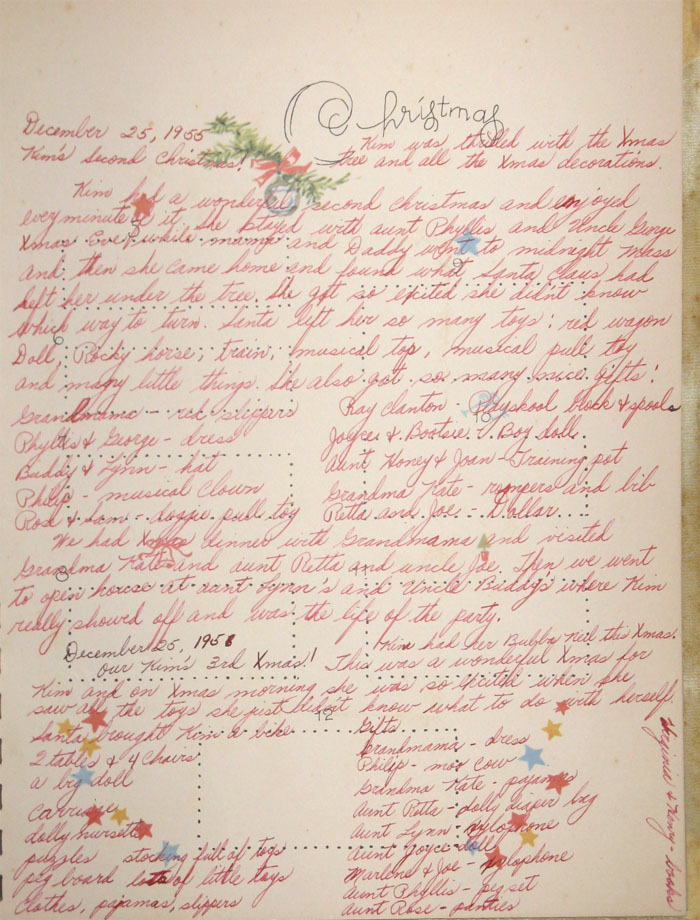 Christmas
December 25, 1955
Kim's Second Christmas!
Kim was thrilled with the Xmas
tree and all the Xmas decorations.
Kim had a wonderful second christmas and enjoyed
every minute of it. She stayed with aunt Phyllis and Uncle George
Xmas Eve, while mama and Daddy went to midnight Mass
and then she came home and found what Santa Claus had
left her under the tree. She got so excited she didn't know
which way to turn. Santa left her so many toys: red wagon
Doll, Rocky horse, train, musical top, musical pull toy
and many little things. She also got so many nice gifts!
Grandmama - red slippers
Phyllis & George - dress
Buddy & Lynn - hat
Philip - musical clown
Rose & Sam - doggie pull toy
Ray Clanton - Playskool block & spools
Joyce & Bootsie - Boy doll
Aunt Honey & Joan - Training pot
Grandma Kate - rompers and bib
Retta and Joe - Dollar
We had Xmas dinner with Grandmama and visited
Grandma Kate and aunt Retta and uncle Joe. Then we went
to open house at aunt Lynn's and Uncle Buddy's where Kim
really showed off and was the life of the party.
December 25, 1956
our Kim's 3rd Xmas!
Kim had her Bubba Neil this Xmas.
This was a wonderful Xmas for
Kim and on Xmas morning she was so excited when she
saw all the toys she just didn't know what to do with herself.
Santa brought Kim a bike
2 tables & 4 chairs
a big doll
carriage
dolly nursette
puzzles stocking full of toys
peg board lots of little toys
clothes, pajamas, slippers
Gifts
Grandmama - dress
Philip - moo cow
Grandma Kate - pajamas
Aunt Retta - dolly diaper bag
Aunt Lynn - xylophone
Aunt Joyce - doll
Marlene & Joe - xylophone
Aunt Phyllis - pig set
Aunt Rose - panties
Virginia & Henry - books
5
9
6
10
7
8
12